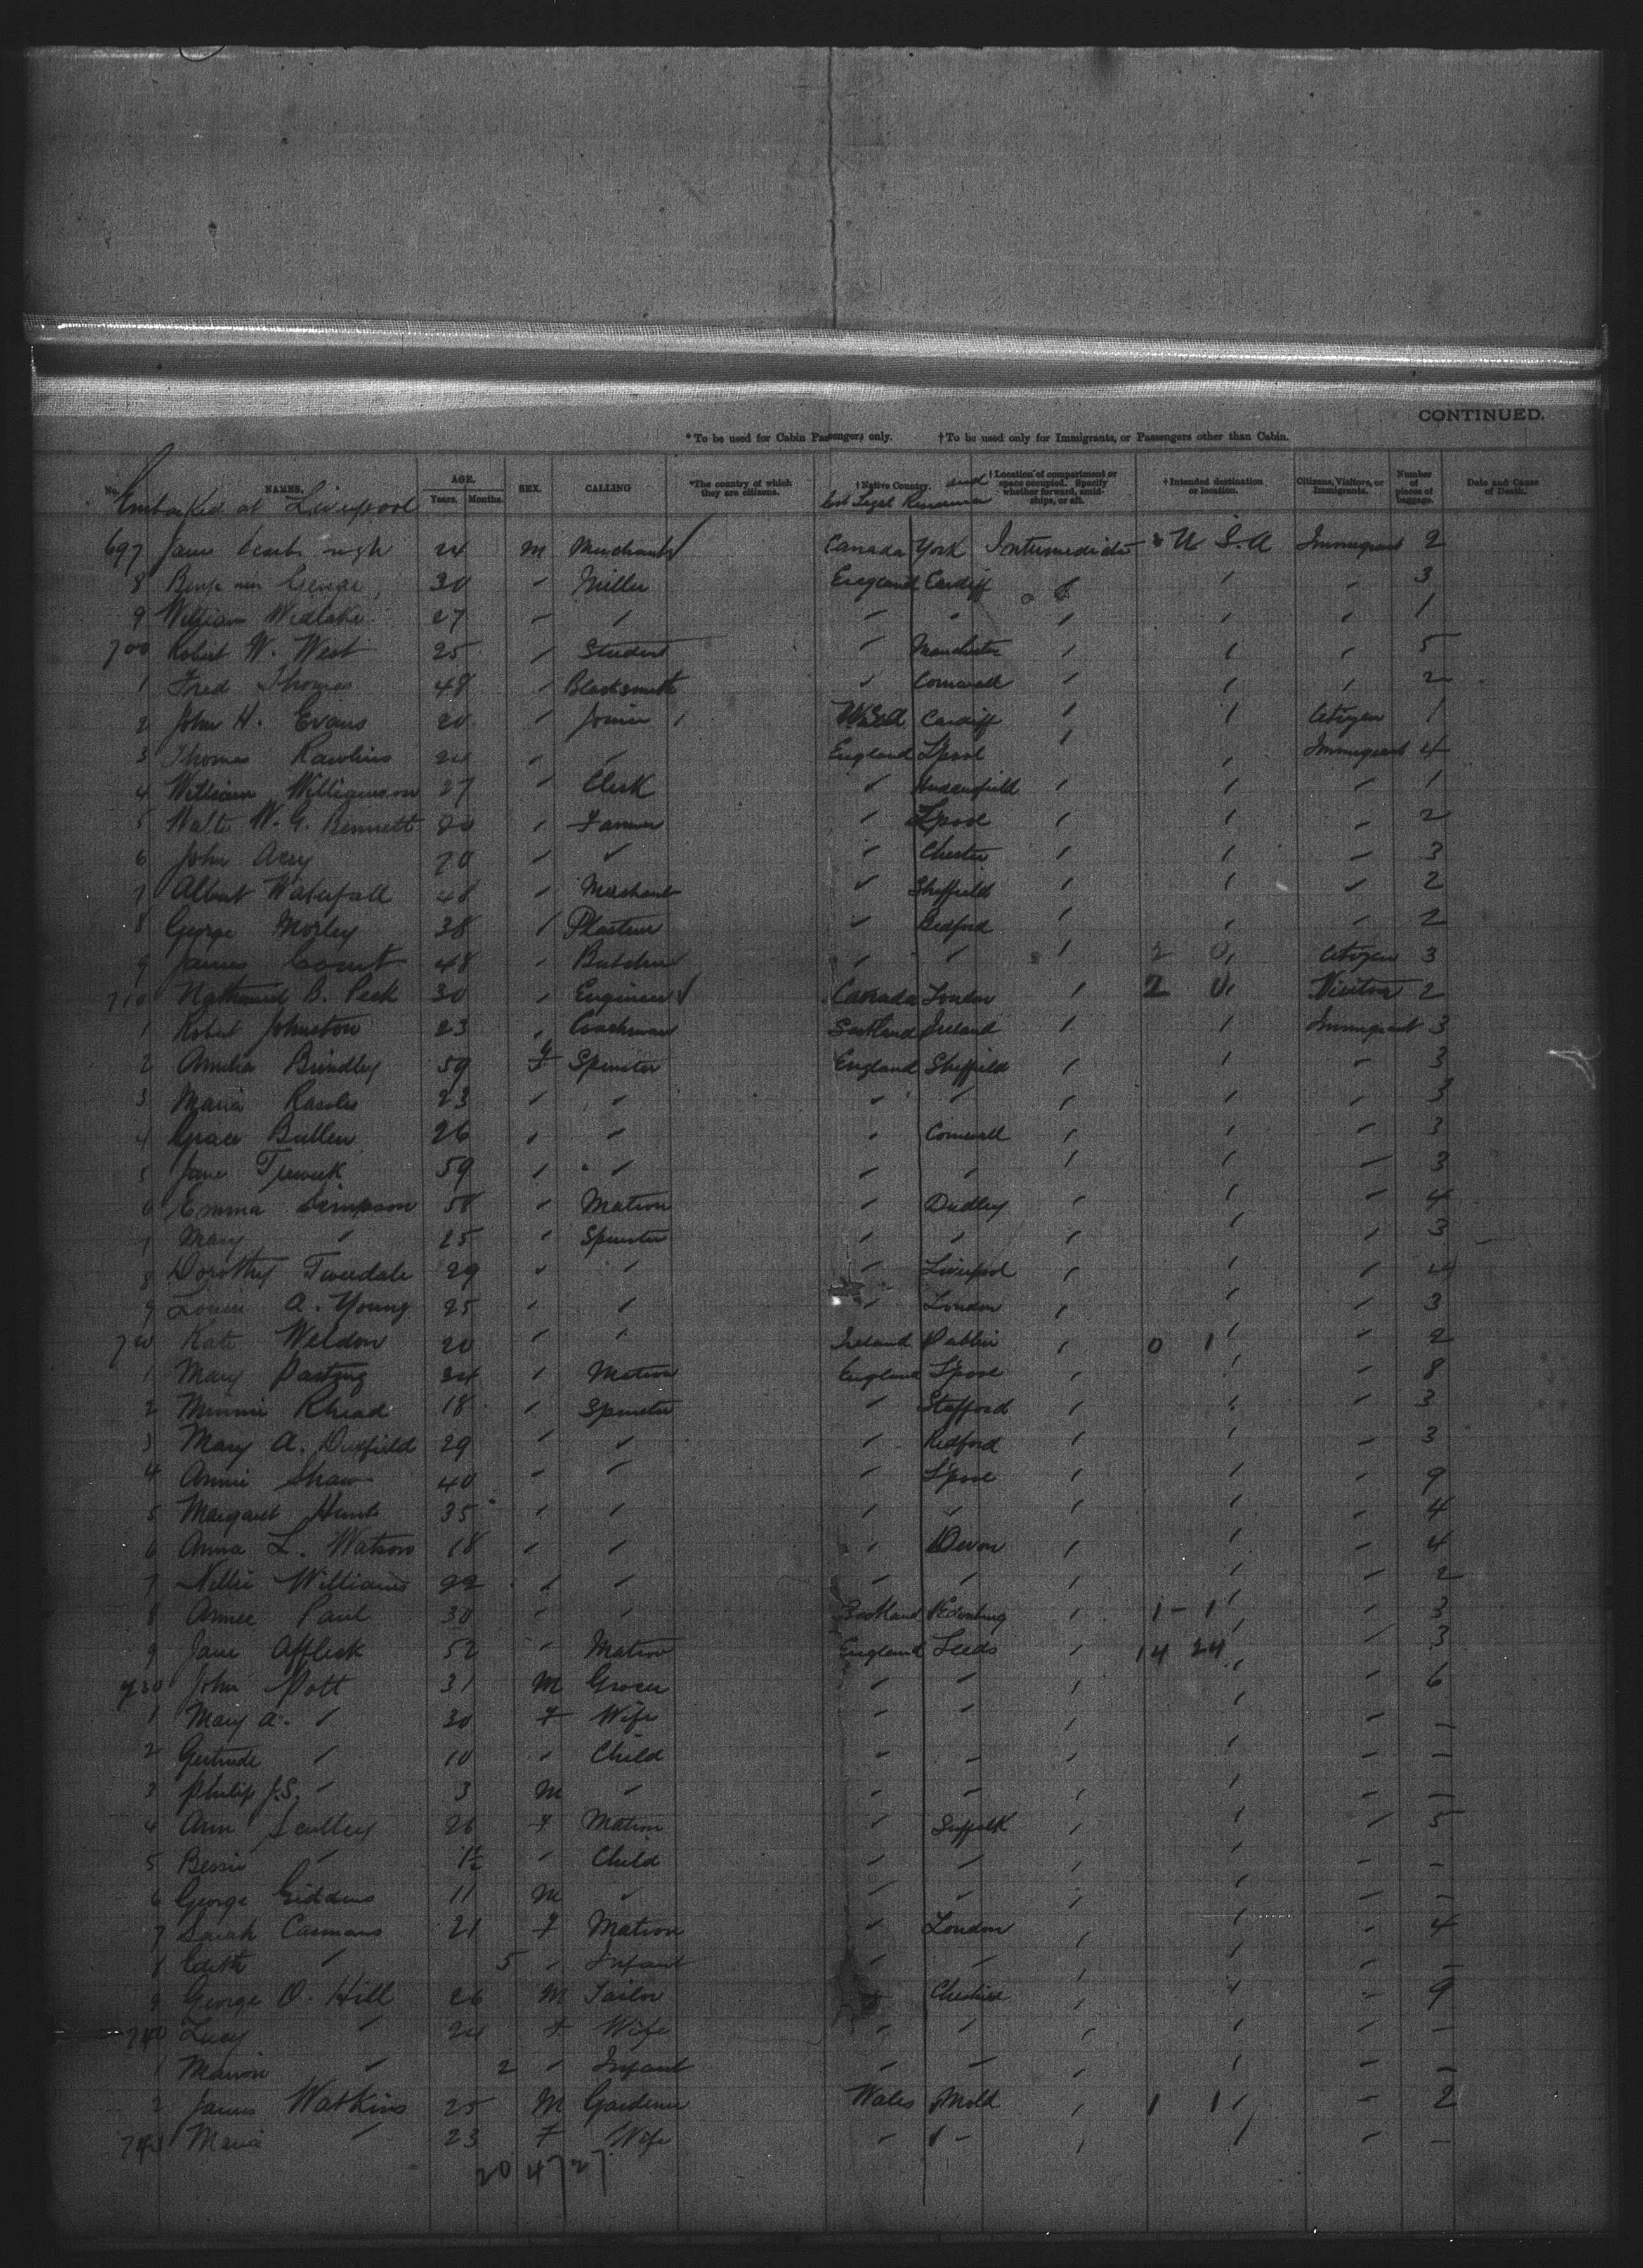 CONTINUED.
*To be used for Cabin Passengers only. †To be used only for Immigrants, or Passengers other than Cabin.
No. NAMES. AGE. Years. Months. SEX. CALLING *The country of which they are citizens. †Native Country. and †Location of compartment or space occupied. Specify whether forward, amidships, or aft. †Intended destination or location. Citizens, Visitors, or Immigrants. Number of pieces of baggage. Date and Cause of Death.
Embarked at Liverpool Last Legal Residence
697 24 M Merchant Canada York Intermediate U S.A Immigrant 2
8 George 30 " Miller England Cardiff " " " 3
9 William Widlake 27 " " " " " " " 1
700 Robert W. West 25 " Student " Manchester " " " 5
1 Fred Thomas 48 " Blacksmith " Cornwall " " " 2
2 John H. Evans 20 " Joiner Cardiff " " Citizen 1
3 Thomas Rawlins 24 " " England L'pool " " Immigrant 4
4 William Williamson 27 " Clerk " Huddersfield " " " 1
5 Walter W. G. Bennett 20 " Farmer " L'pool " " " 2
6 John Acry 20 " " " Chester " " " 3
7 Albert Waterfall 48 " Merchant " Sheffield " " " 2
8 George Mozley 38 " Plasterer " Bedford " " " 2
9 James 48 " Butcher " " " 2 0 " Citizen 3
710 Nathaniel B. Peck 30 " Engineer Canada London " 2 0 " Visitor 2
1 Robert Johnston 23 " Coachman Scotland Ireland " " Immigrant 3
2 Amelia Brindley 59 F Spinster England Sheffield " " " 3
3 Maria 23 " " " " " " " 3
4 Grace Bullen 26 " " " Cornwall " " " 3
5 Jane 59 " " " " " " " 3
6 Emma Simpson 58 " Matron " Dudley " " " 4
7 Mary " 25 " Spinster " " " " " 3
8 Dorothy Tweedale 29 " " " Liverpool " " " 4
9 Louie A. Young 25 " " " London " " " 3
720 Kate Weldon 20 " " Ireland Dublin " 0 1 " " 2
1 Mary 24 " Matron England L'pool " " " 8
2 Minnie Rhead 18 " Spinster " Stafford " " " 3
3 Mary A. Duffield 29 " " " " " " 3
4 Annie Shaw 40 " " " L'pool " " " 9
5 Margaret Hunt 35 " " " " " " " 4
6 Anna L. Watson 18 " " " Devon " " " 4
7 Nellie Williams 22 " " " " " " " 2
8 Annie Paul 30 " " Scotland " 1 - 1 " " 3
9 Jane Affleck 52 " Matron England Leeds " 14 24 " " 3
730 John Pott 31 M Grocer " " " " " 6
1 Mary A. " 30 F Wife " " " " " -
2 Gertrude " 10 " Child " " " " " -
3 Philip J.S. " 3 M " " " " " " -
4 Ann Scutley 26 F Matron " Suffolk " " " 5
5 Bessie " 1½ " Child " " " " " -
6 George Giddens 11 M " " " " " " -
7 Sarah Casmans 21 F Matron " London " " " 4
8 Edith " 5 " Infant " " " " " -
9 George O. Hill 26 M Tailor " Cheshire " " " 9
740 Lucy " 24 F Wife " " " " " -
1 Marion " 2 " Infant " " " " " -
2 James Watkins 25 M Gardener Wales Mold " 1 1 " " 2
743 Maria " 23 F Wife " " " " " -
20 47 27